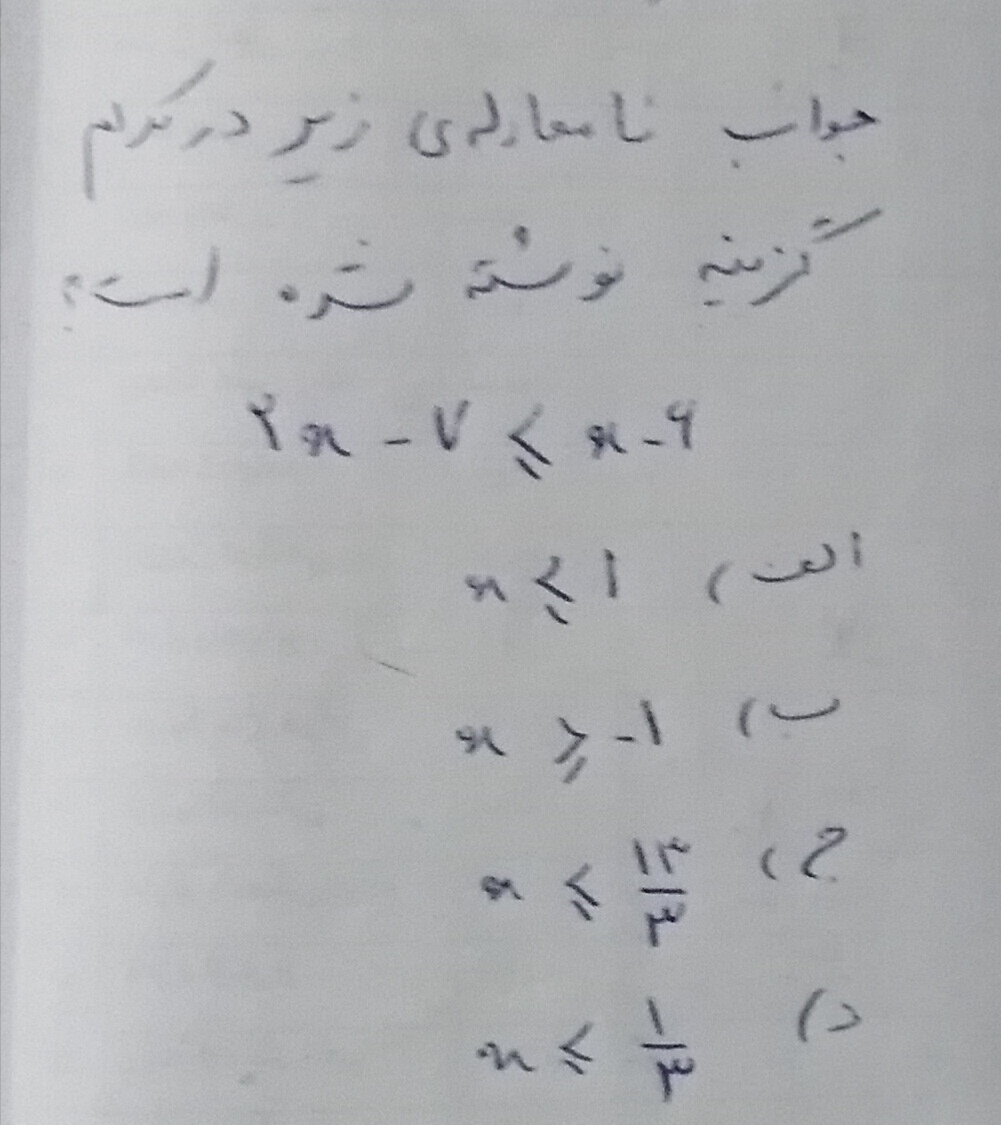 جواب نامعادله‌ی زیر در کدام
گزینه نوشته شده است؟
۲x - ۷ ≤ x - ۶
الف) x ≤ ۱
ب) x ≥ -۱
ج) x ≤ ۱۳/۳
د) x ≤ ۱/۳